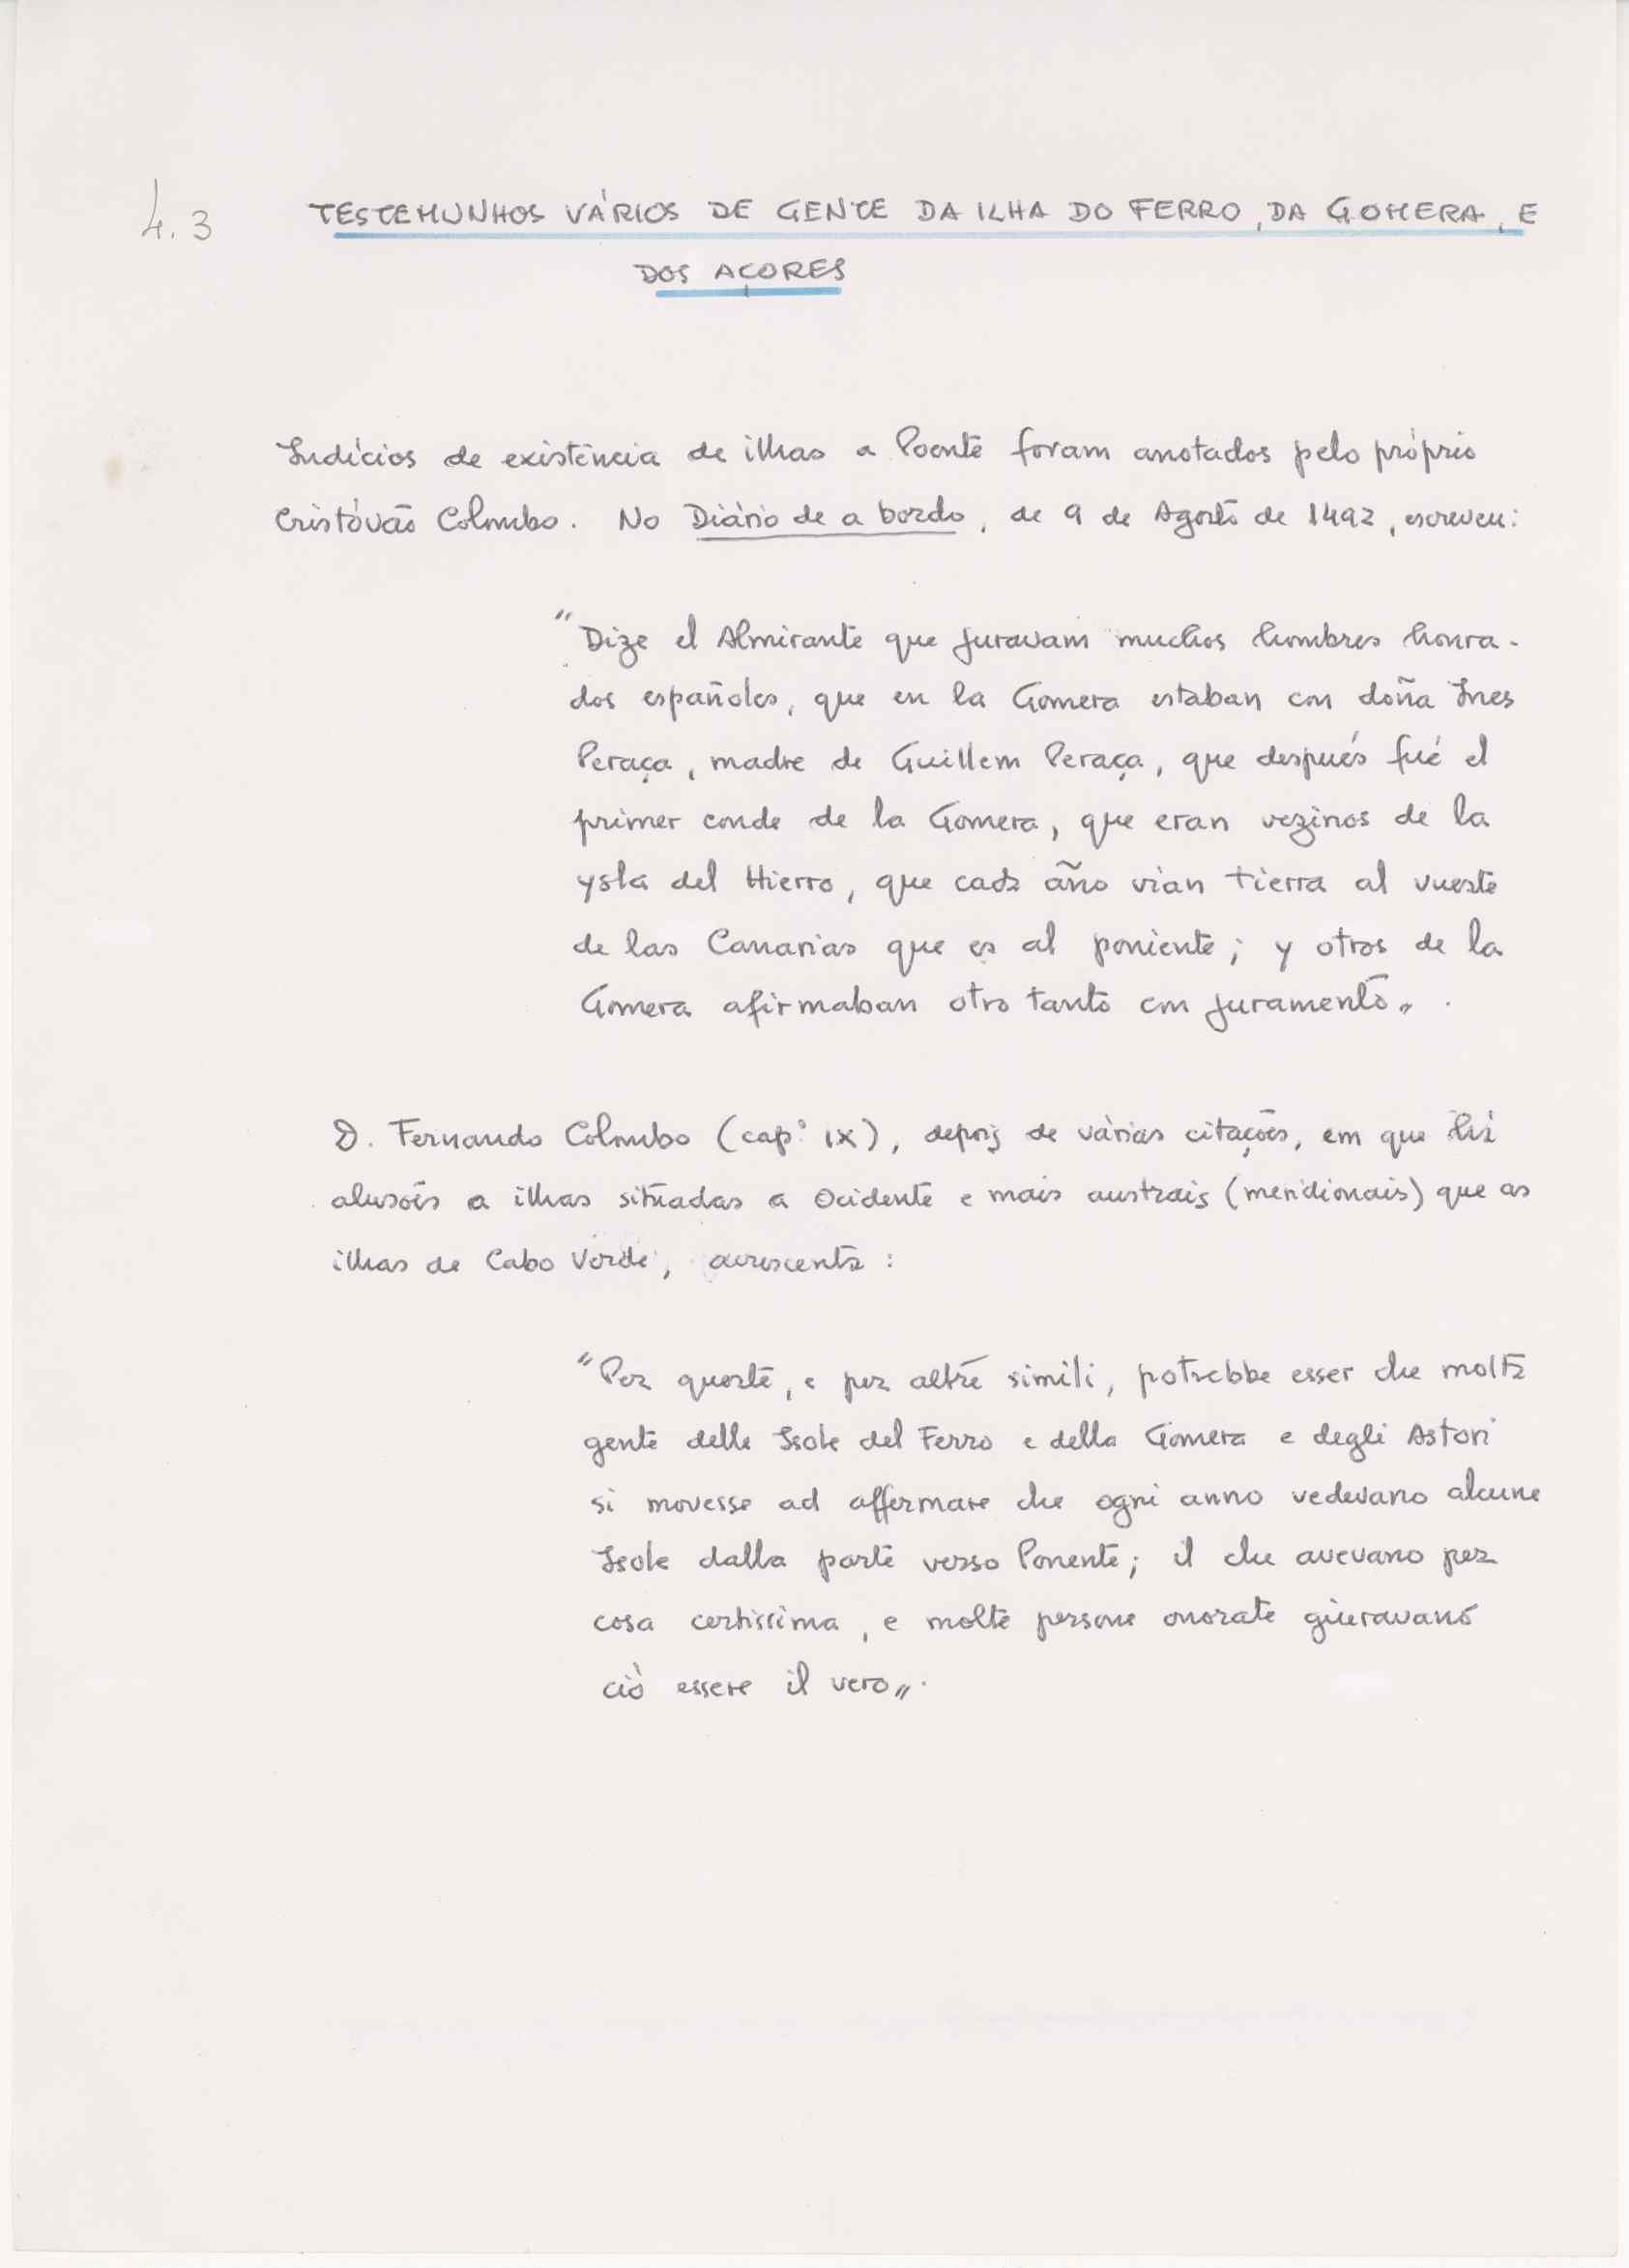 4.3 TESTEMUNHOS VÁRIOS DE GENTE DA ILHA DO FERRO, DA GOMERA, E
DOS AÇORES
Indícios de existência de ilhas a Poente foram anotados pelo próprio
Cristóvão Colombo. No Diário de a bordo, de 9 de Agosto de 1492, escreveu:
"Dize el Almirante que juravam muchos hombres honra-
dos españoles, que en la Gomera estaban con doña Ines
Peraça, madre de Guillem Peraça, que después fué el
primer conde de la Gomera, que eran vezinos de la
ysla del Hierro, que cada año vian tierra al vueste
de las Canarias que es al poniente; y otros de la
Gomera afirmaban otro tanto con juramento".
D. Fernando Colombo (cap.º IX), depois de várias citações, em que há
alusões a ilhas situadas a Ocidente e mais austrais (meridionais) que as
ilhas de Cabo Verde, acrescenta:
"Per queste, e per altre simili, potrebbe esser che molta
gente delle Isole del Ferro e della Gomera e degli Astori
si movesse ad affermare che ogni anno vedevano alcune
Isole dalla parte verso Ponente; il che avevano per
cosa certissima, e molte persone onorate giuravano
ciò essere il vero".